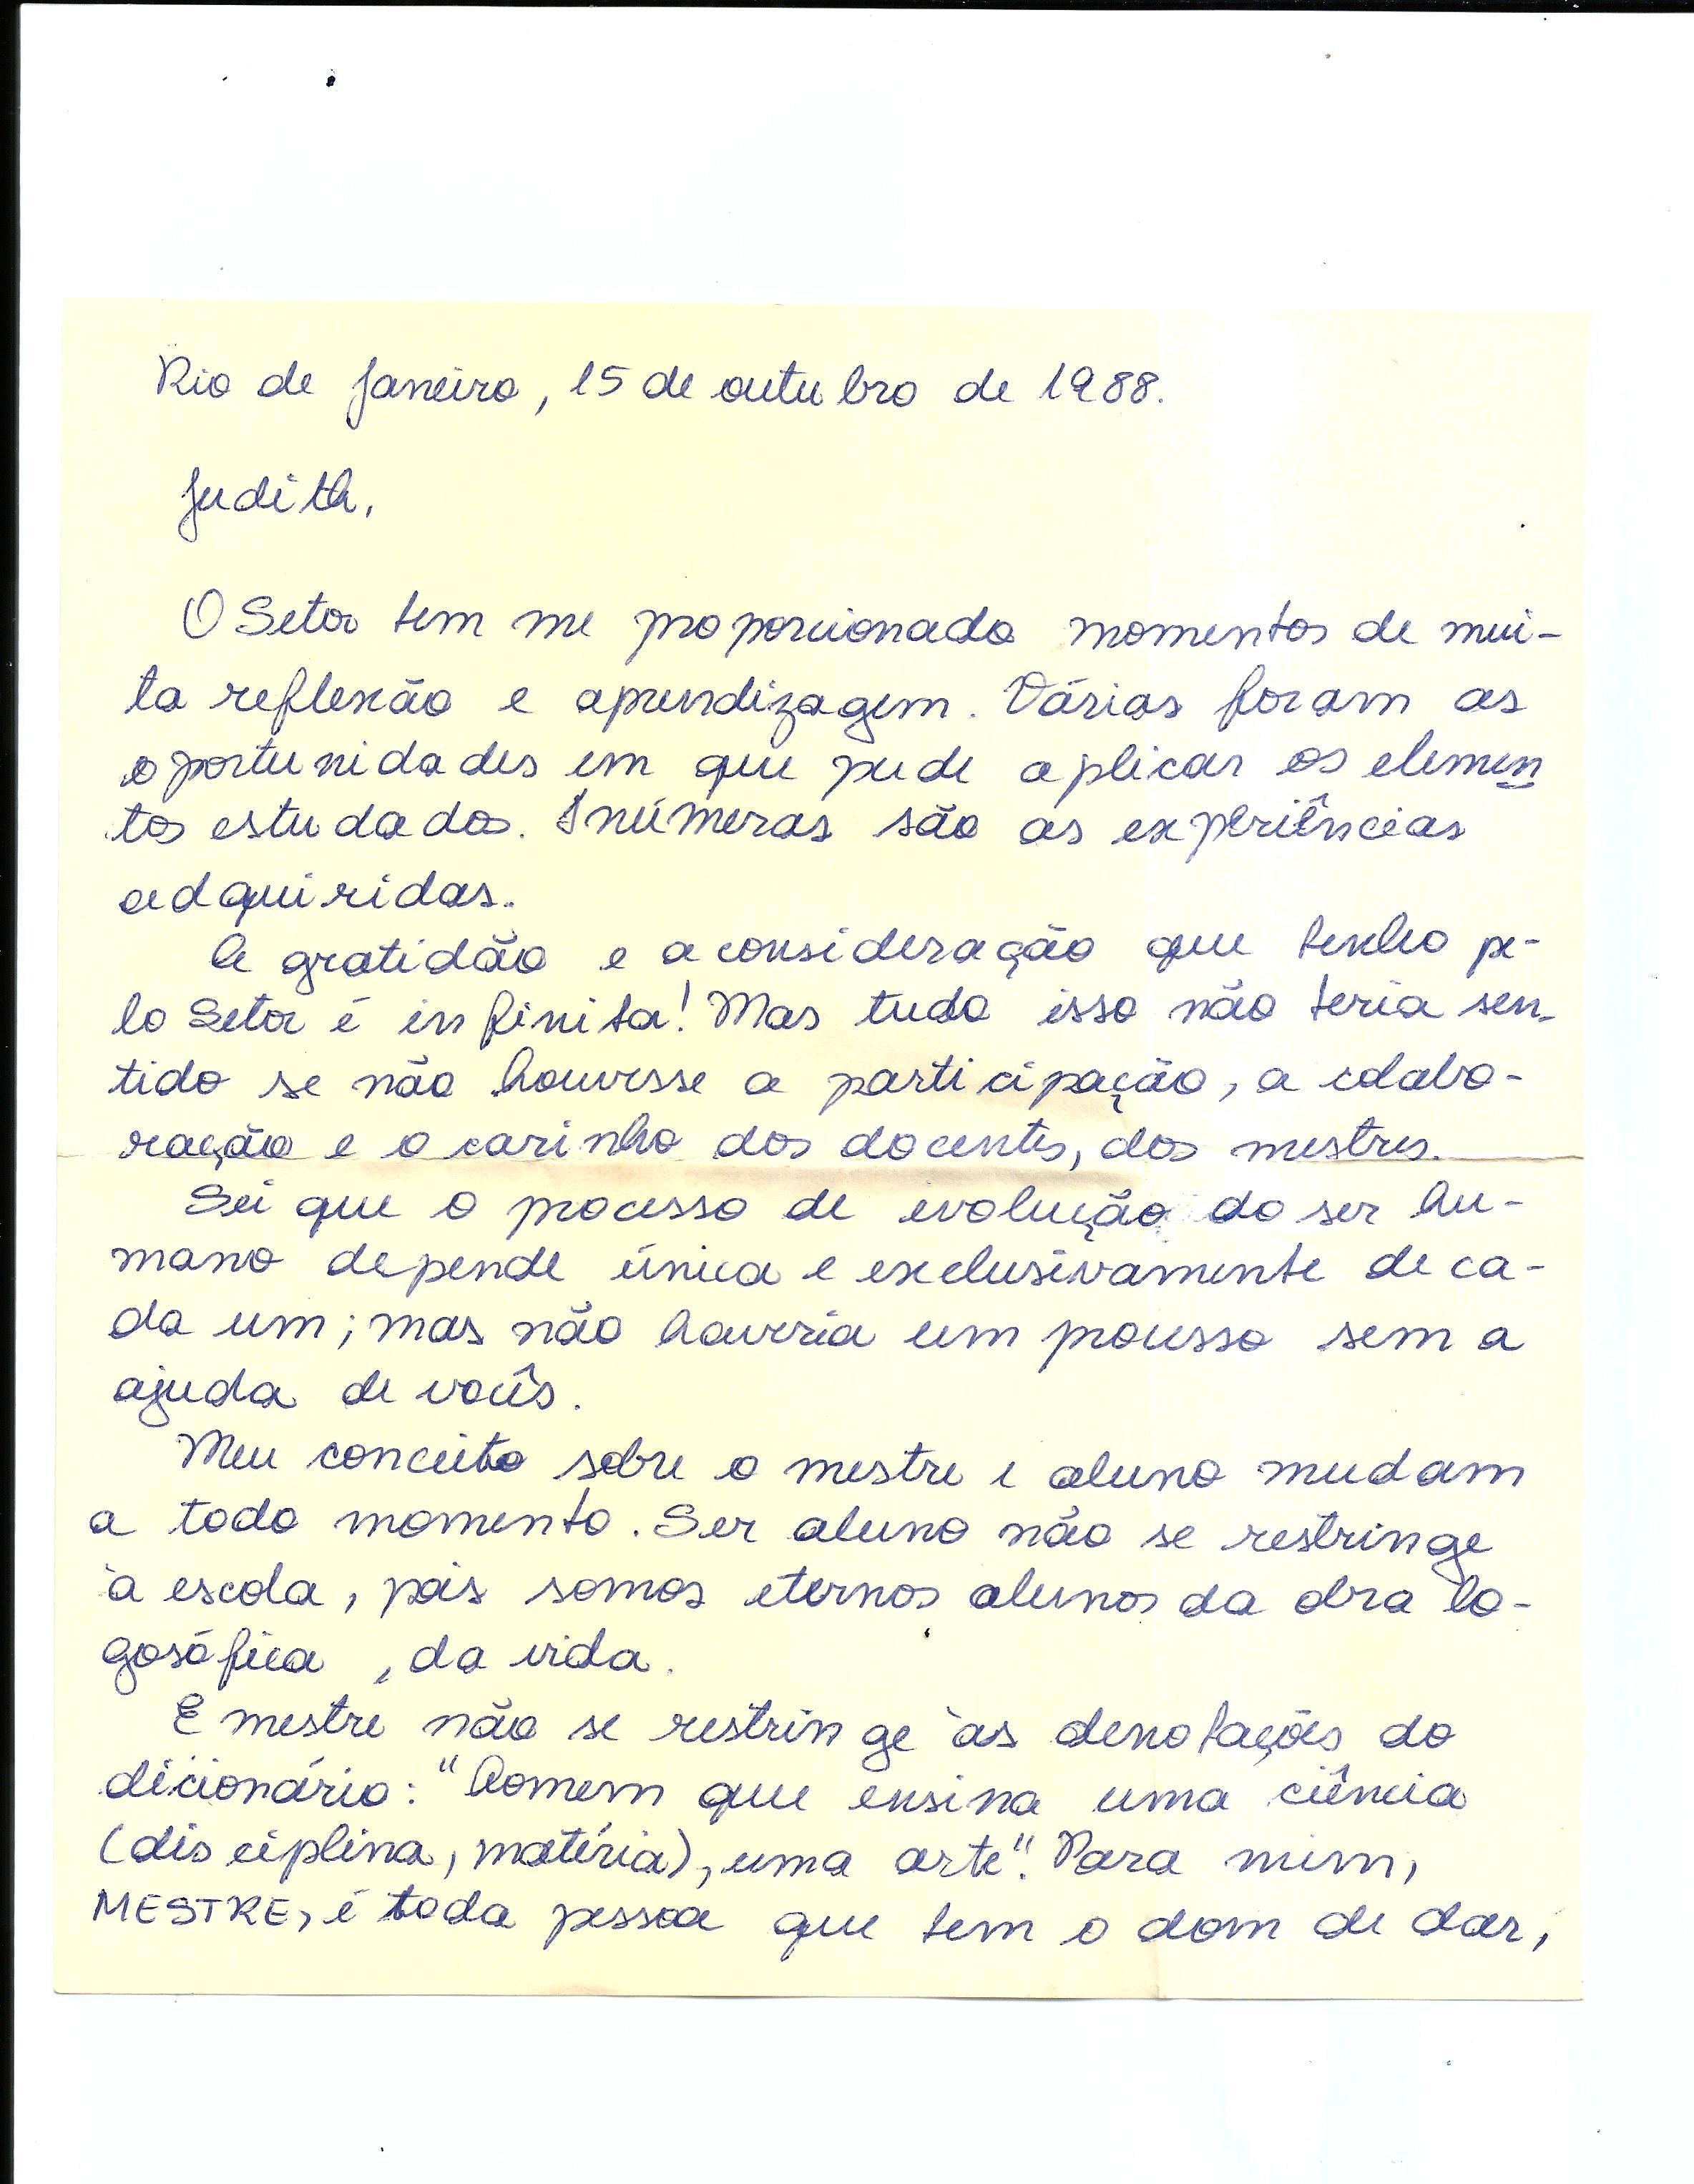 Rio de Janeiro, 15 de outubro de 1988.
Judith,
O Setor tem me proporcionado momentos de mui-
ta reflexão e aprendizagem. Várias foram as
oportunidades em que pude aplicar os elemen
tos estudados. Inúmeras são as experiências
adquiridas.
A gratidão e a consideração que tenho pe-
lo Setor é infinita! Mas tudo isso não teria sen-
tido se não houvesse a participação, a colabo-
ração e o carinho dos docentes, dos mestres.
Sei que o processo de evolução do ser hu-
mano depende única e exclusivamente de ca-
da um; mas não haveria um processo sem a
ajuda de vocês.
Meu conceito sobre o mestre e aluno mudam
a todo momento. Ser aluno não se restringe
à escola, pois somos eternos alunos da obra lo-
gosófica, da vida.
E mestre não se restringe às denotações do
dicionário: "homem que ensina uma ciência
(disciplina, matéria), uma arte". Para mim,
MESTRE, é toda pessoa que tem o dom de dar,